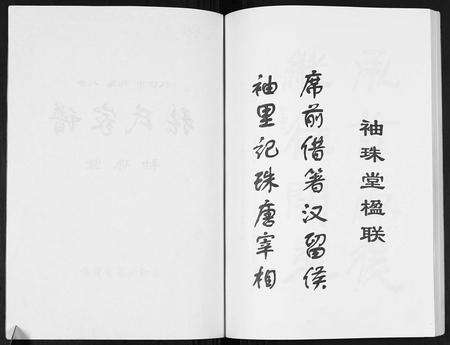 袖珠堂楹联
席前借箸汉留侯
袖里记珠唐宰相